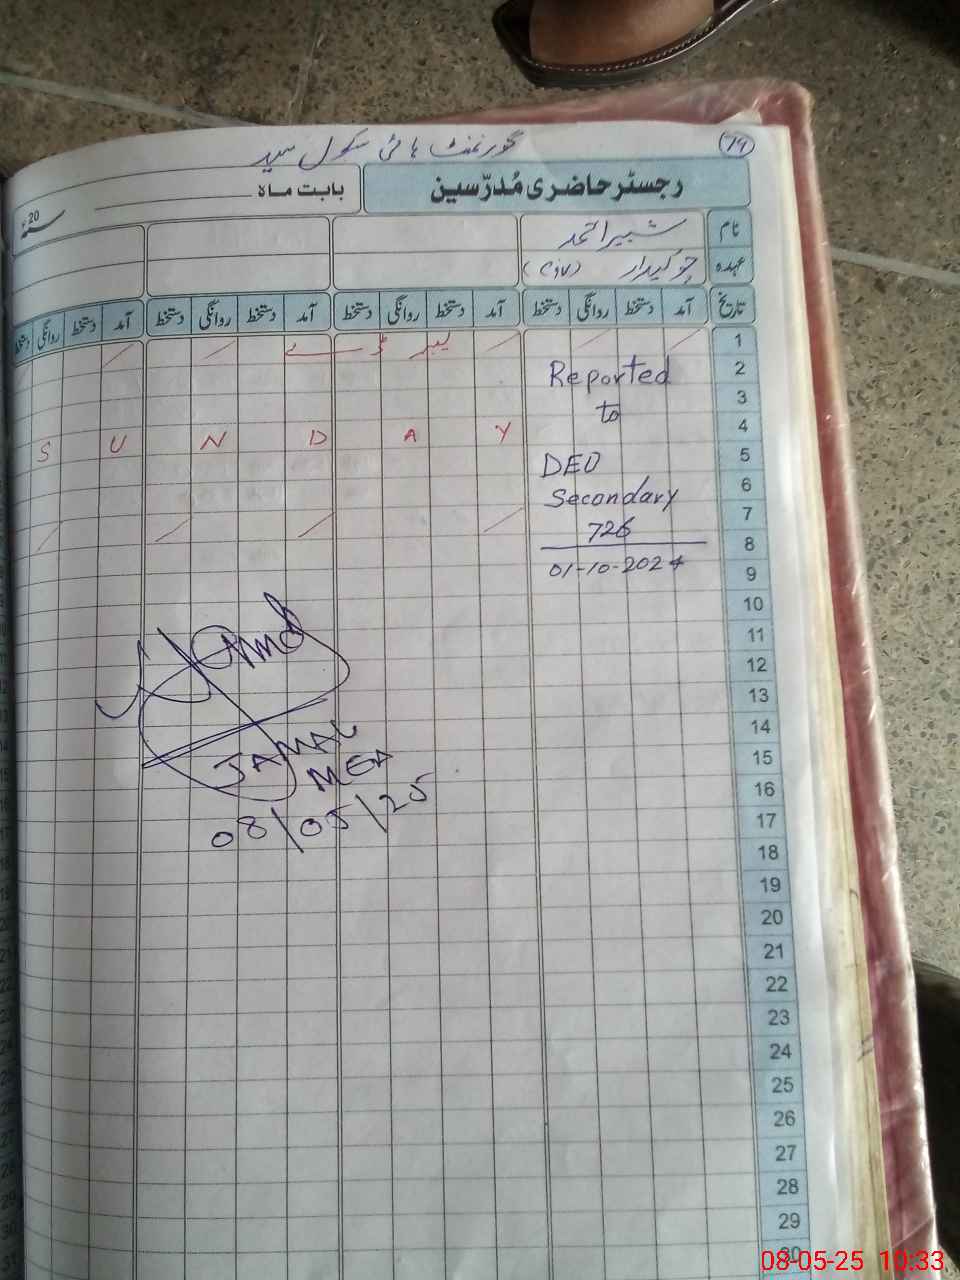 79
گورنمنٹ ہائی سکول سید
رجسٹر حاضری مُدرّسین
بابت ماہ
20ء
نام شبیر احمد
عہدہ چوکیدار (Civ)
تاریخ آمد دستخط روانگی دستخط آمد دستخط روانگی دستخط آمد دستخط روانگی دستخط آمد دستخط روانگی دستخط
1 لیبر ڈے
2 Reported
3 to
4 S U N D A Y
5 DEO
6 Secondary
7 726
8
9 01-10-2024
10
11
12
13
14
15
16
17
18
19
20
21
22
23
24
25
26
27
28
29
30
JAMAL
MEA
08/05/25
08-05-25 10:33